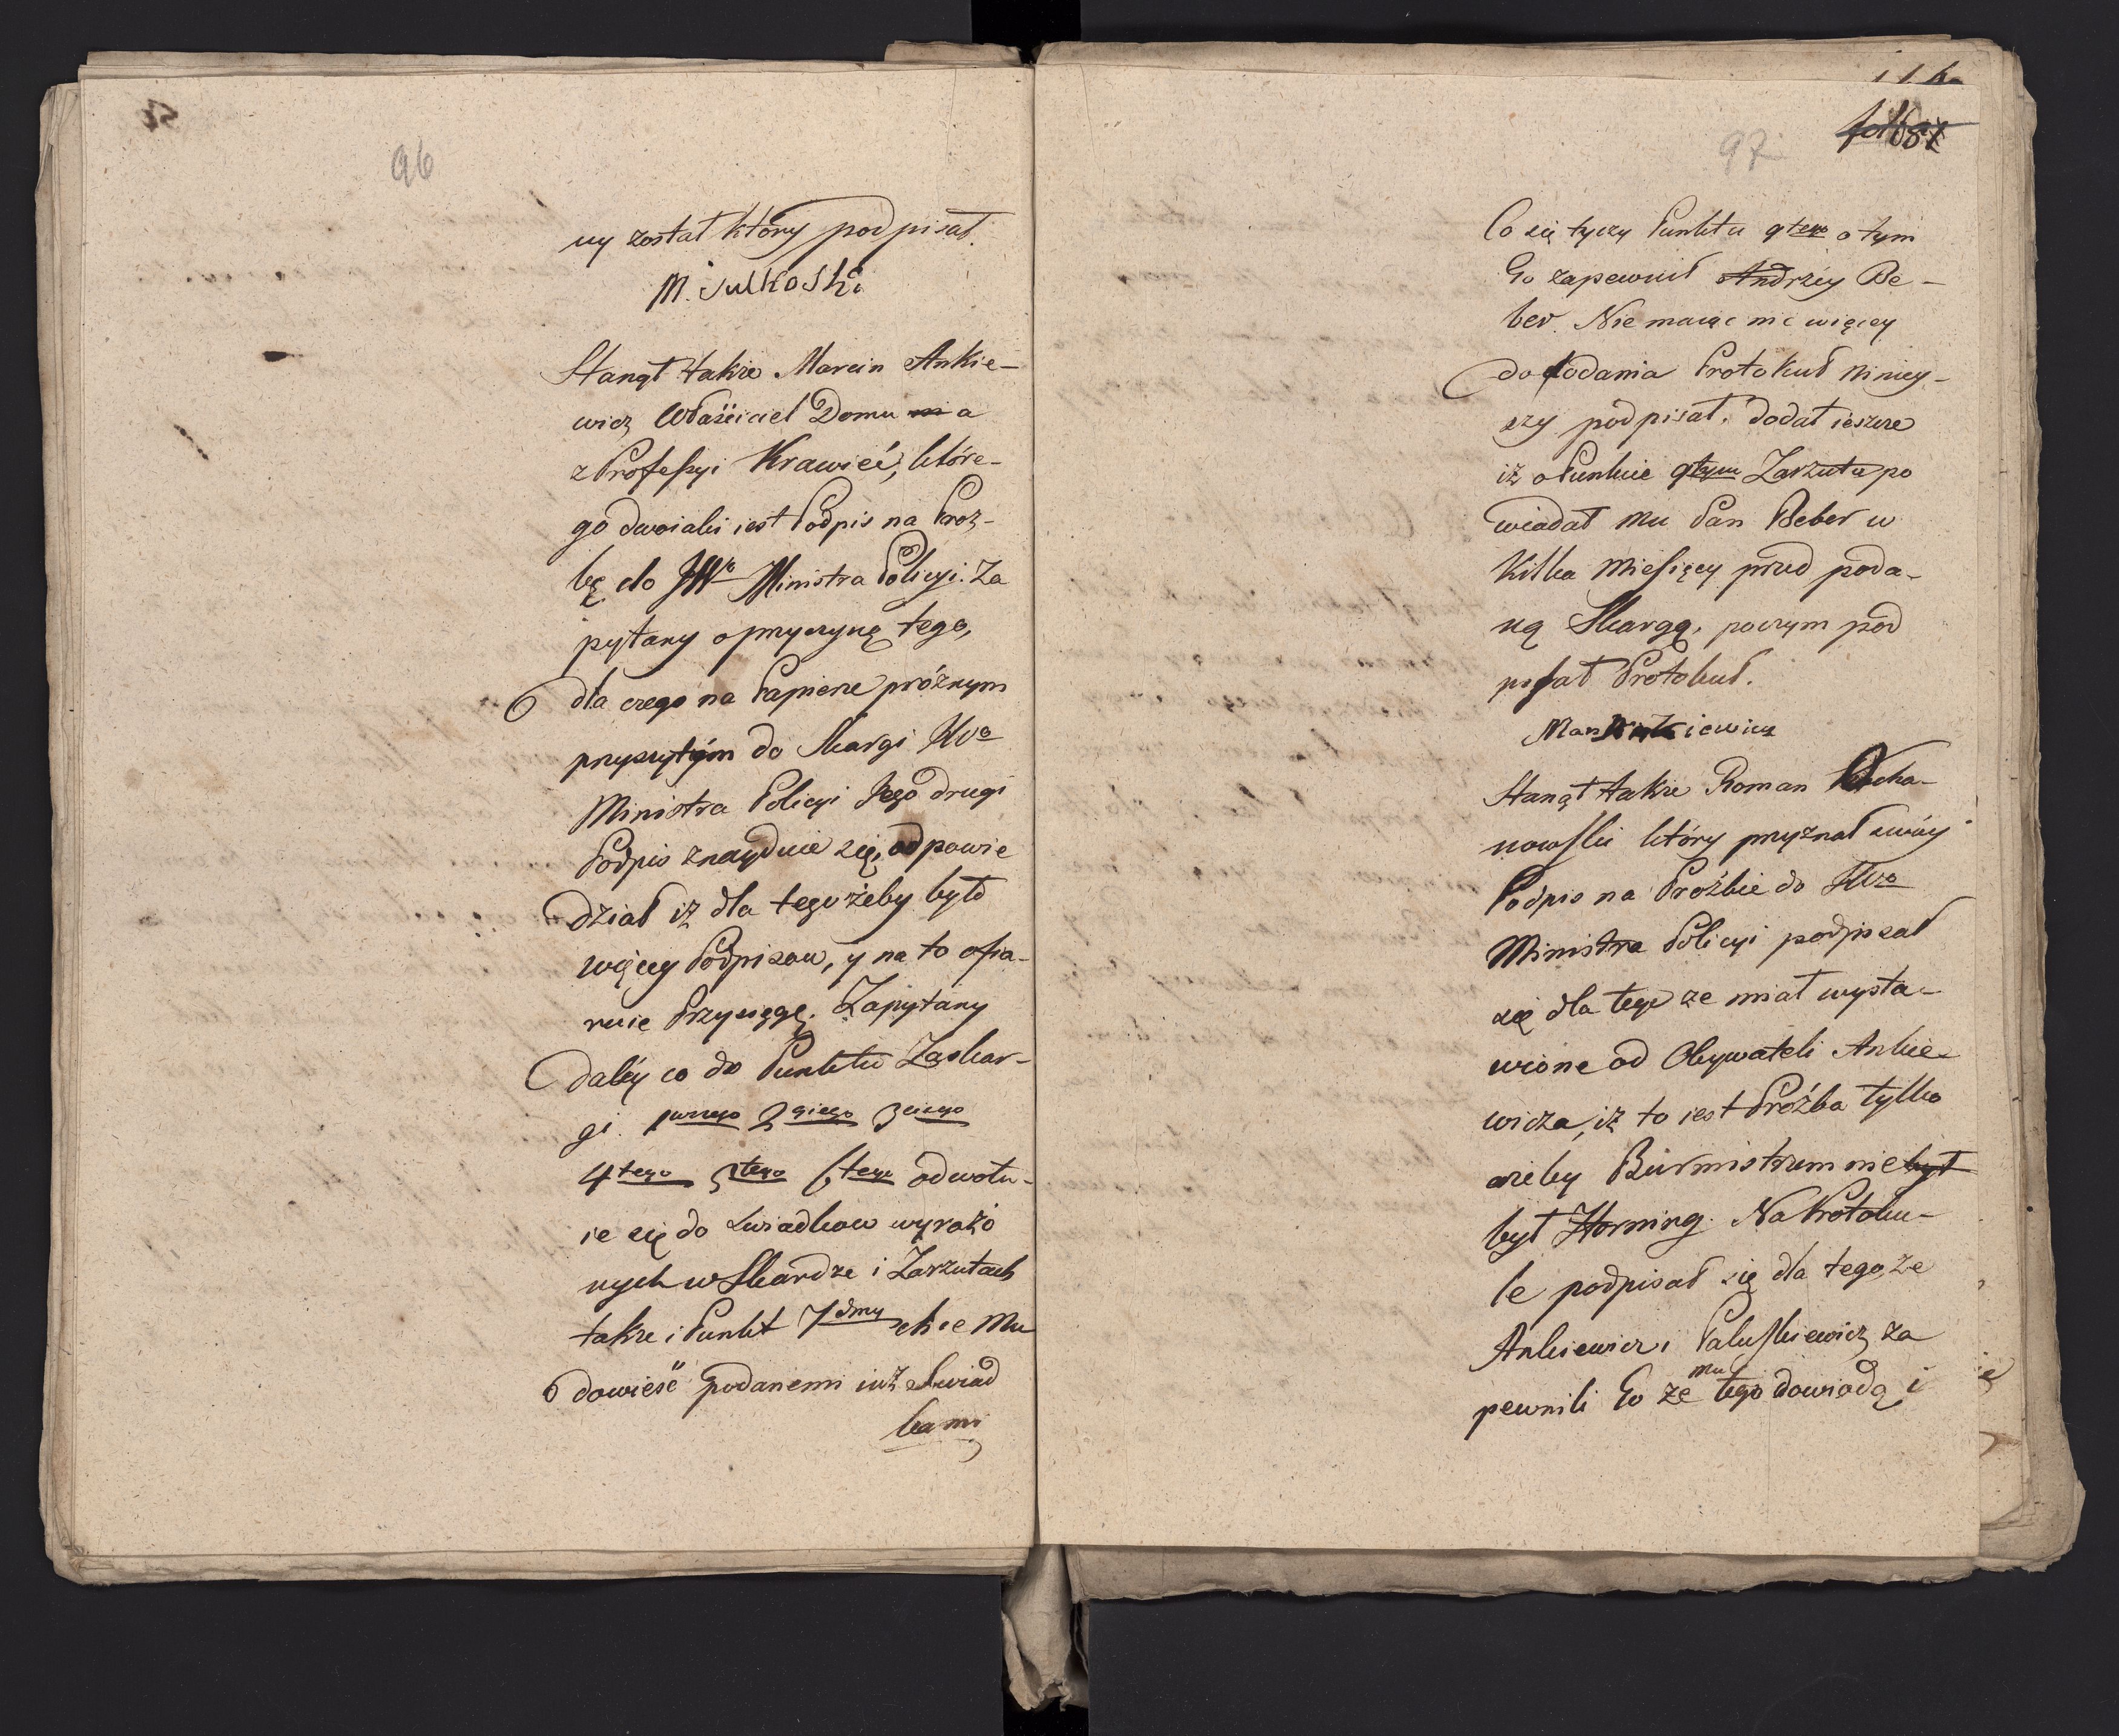 96
ny został który podpisał.
M. Sulkoski
Stanął także Marcin Ankie-
wicz Właściciel Domu a
z Professyi Krawieć, które-
go dwoiaki iest Podpis na Proź-
bę do JWo Ministra Policyi. Za
pytany o przyczynę tego,
dla czego na Papierze próżnym
przyszytym do Skargi JWo
Ministra Policyi Jego drugi
Podpis znayduie się, odpowie
dział iż dla tego żeby było
więcey Podpisow, y na to ofia-
ruie Przysięgę. Zapytany
daléy co do Punktu Zaskar-
gi. 1wszego 2giego 3ciego
4tego 5tego 6tego odwołu-
ie się do Swiadkow wyrażo
nych w Skardze i Zarzutach
także i Punkt 7dmy chce Mu
dowieść podanemi iuż Swiad
kami
97
Co się tyczy Punktu 9tego o tym
Go zapewnił Andrzéy Be-
ber. Nie maiąc nic więcey
do dodania Protokuł niniey-
szy podpisał. Dodał ieszcze
iż o Punkcie 9tym Zarzutu po
wiadał mu Pan Beber w
Kilka Miesięcy przed poda-
ną Skargą, poczym pod
pisał Protokuł.
Stanął także Roman Kocha-
nowski który przyznał swóy
Podpis na Proźbie do JWo
Ministra Policyi podpisał
się dla tego ze miał wysta-
wione od Obywateli Ankie-
wicza, iż to iest Proźba tylko
ażeby Burmistrzem nie był
był Horning. Na Protoku-
le podpisał się dla tego, ze
Ankiewicz i Paluskiewicz za
pewnili Go ze mu tego dowiodą i